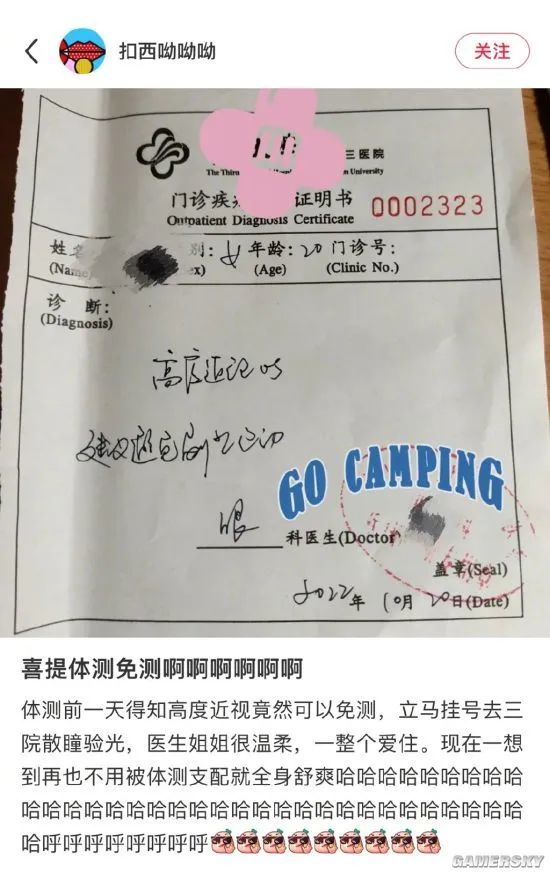 扣西呦呦呦
关注
三医院
The Thir
n University
门诊疾 证明书
Outpatient Diagnosis Certificate 0002323
姓名 别: 女 年龄: 20 门诊号:
(Name) ex) (Age) (Clinic No.)
诊 断:
(Diagnosis)
高度近视 os
建议避免剧烈运动
GO CAMPING
眼 科医生(Doctor
盖章(Seal)
2022年 10月 20日(Date)
喜提体测免测啊啊啊啊啊啊
体测前一天得知高度近视竟然可以免测，立马挂号去三
院散瞳验光，医生姐姐很温柔，一整个爱住。现在一想
到再也不用被体测支配就全身舒爽哈哈哈哈哈哈哈哈哈
哈哈哈哈哈哈哈哈哈哈哈哈哈哈哈哈哈哈哈哈哈哈哈哈
哈呼呼呼呼呼呼呼呼
GAMERSKY